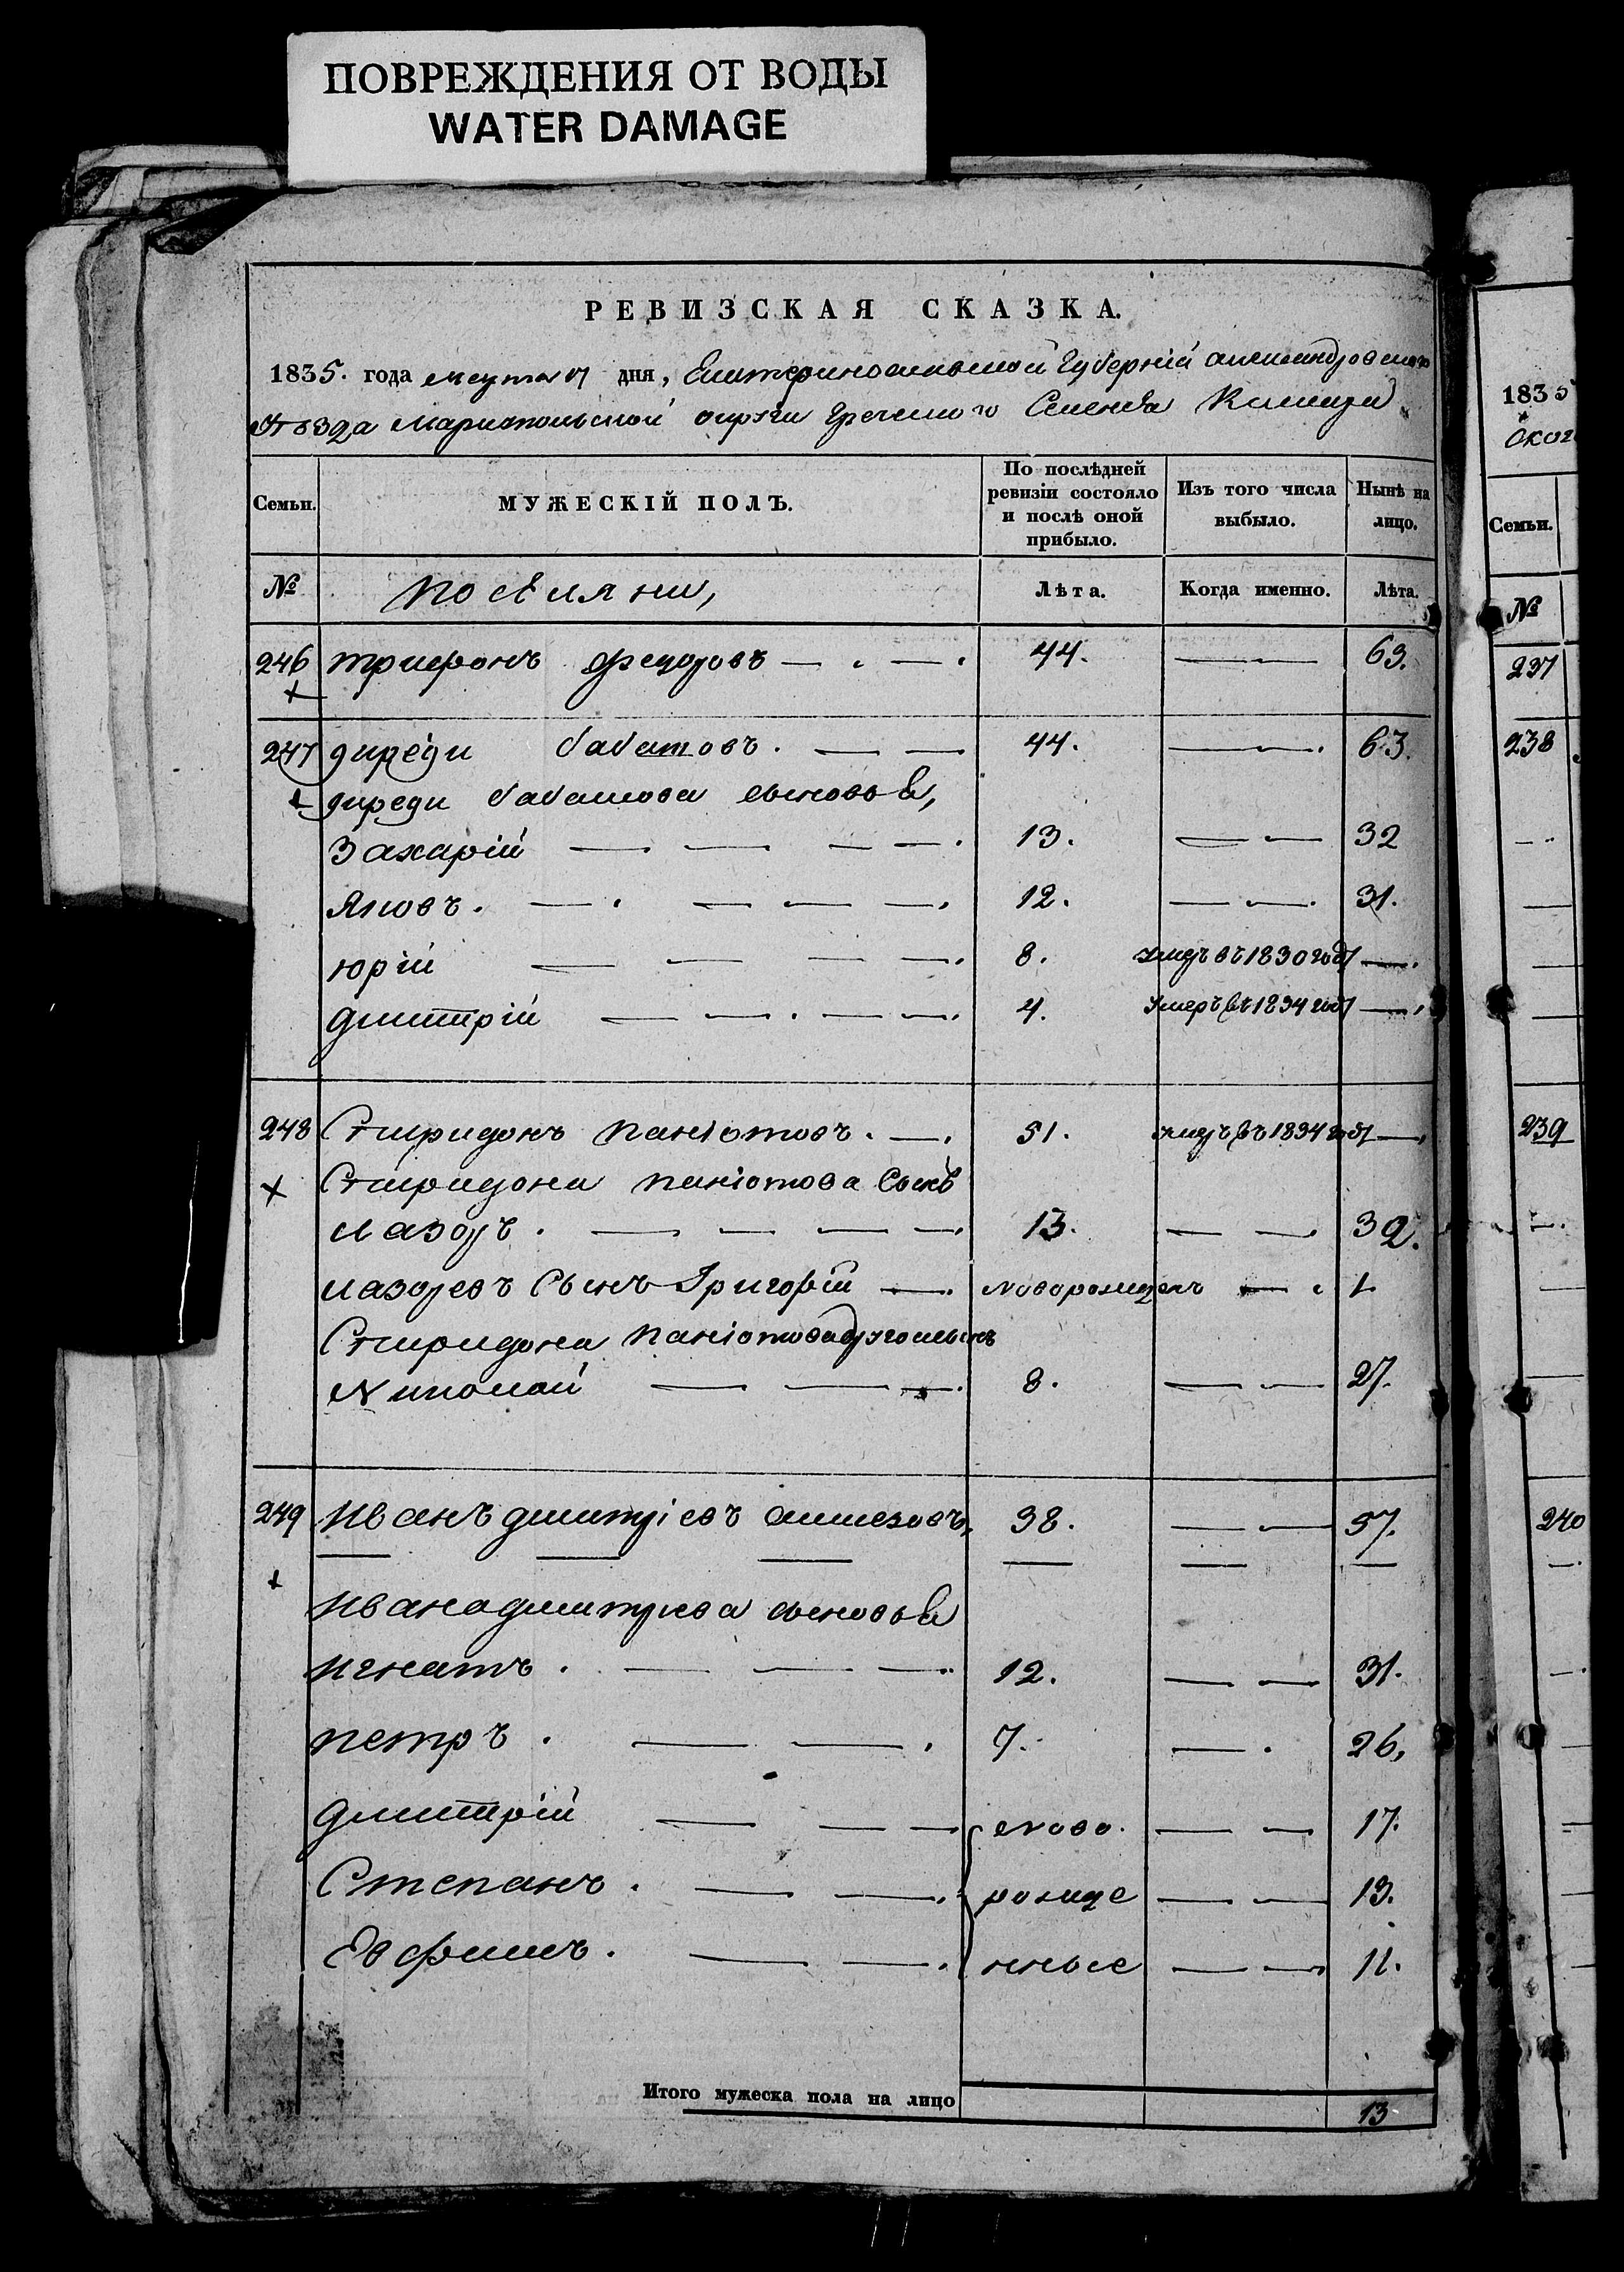 ПОВРЕЖДЕНИЯ ОТ ВОДЫ
WATER DAMAGE
РЕВИЗСКАЯ СКАЗКА.
1835. года марта 17 дня, Екатеринославской Губерніи александровскаго
уѣзда Мариупольской округи Греческаго Селенія
Семьи. МУЖЕСКІЙ ПОЛЪ. По послѣдней ревизіи состояло и послѣ оной прибыло. Изъ того числа выбыло. Нынѣ на лицо.
№ поселяни, Лѣта. Когда именно. Лѣта.
246 трифонъ федоровъ 44. 63.
247 44. 63.
сыновья,
Захарій 13. 32
Яковъ. 12. 31.
юрій 8. умеръ въ 1830 году
дмитрій 4. Умеръ въ 1834 году
248 Спиридонъ паніотовъ. 51. умеръ въ 1834 году
Спиридона паніотова Сынъ
лазоръ. 13. 32.
лазоревъ Сынъ Григорій новорожденъ 1
Спиридона паніотова другой сынъ
Николай 8. 27.
249 Иванъ дмитріевъ 38. 57.
Ивана дмитрієва сыновья
игнатъ. 12. 31.
петръ. 7. 26.
дмитрій ново. 17.
Степанъ. рожде 13.
Евфимъ. нные 11.
Итого мужеска пола на лицо 13
1835
Семьи.
№
237
238
239
240